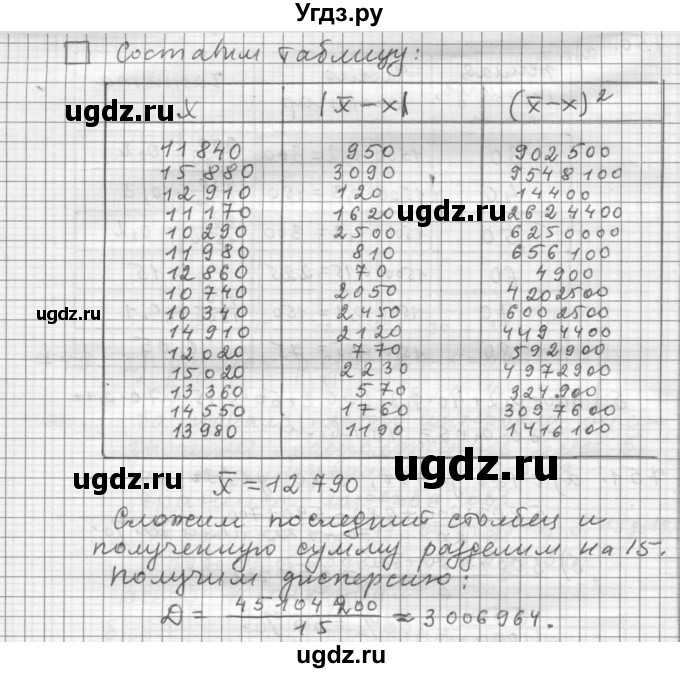 Угдз.ру
Составим таблицу:
x |x̄ - x| (x̄ - x)²
ugdz.ru
11 840 950 902 500
15 880 3090 9548 100
12 910 120 14400
11 170 1620 2624400
ugdz.ru
10 290 2500 6250000
11 980 810 656 100
12 860 70 4900
10 740 2050 4202500
ugdz.ru ugdz.ru
10 340 2450 6002500
14 910 2120 4494400
12 020 770 592900
15 020 2230 4972900
13 360 570 324900
14 550 1760 3097600
13 980 1190 1416100
ugdz.ru
ugdz.ru
x̄ = 12 790
Сложим последний столбец и
полученную сумму разделим на 15.
Получим дисперсию:
D = 45104200 / 15 ≈ 3006964.
ugdz.ru
ugdz.ru